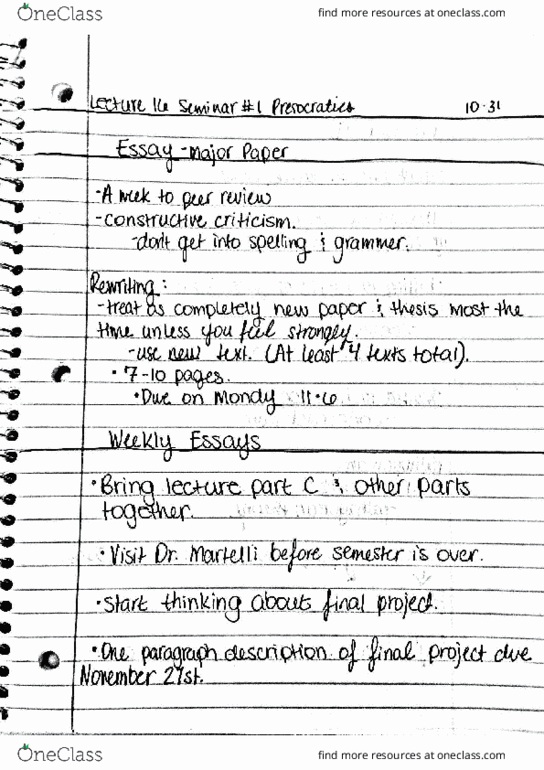 OneClass find more resources at oneclass.com
Lecture 16 Seminar #1 Presocratics 10-31
Essay - Major Paper
• A week to peer review
- constructive criticism.
- don't get into spelling & grammer.
Rewriting:
- treat as completely new paper & thesis most the
time unless you feel strongly.
- use "new" text. (At least 4 texts total).
• 7-10 pages.
• Due on Mondy 11-6
Weekly Essays
• Bring lecture part C & other parts
together.
• Visit Dr. Martelli before semester is over.
• Start thinking about final project.
• One paragraph description of final project due
November 21st.
OneClass find more resources at oneclass.com